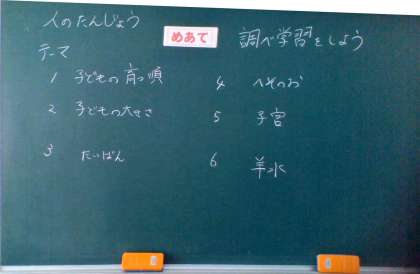 人のたんじょう
めあて
調べ学習をしよう
テーマ
1 子どもの育つ順
2 子どもの大きさ
3 たいばん
4 へそのお
5 子宮
6 羊水